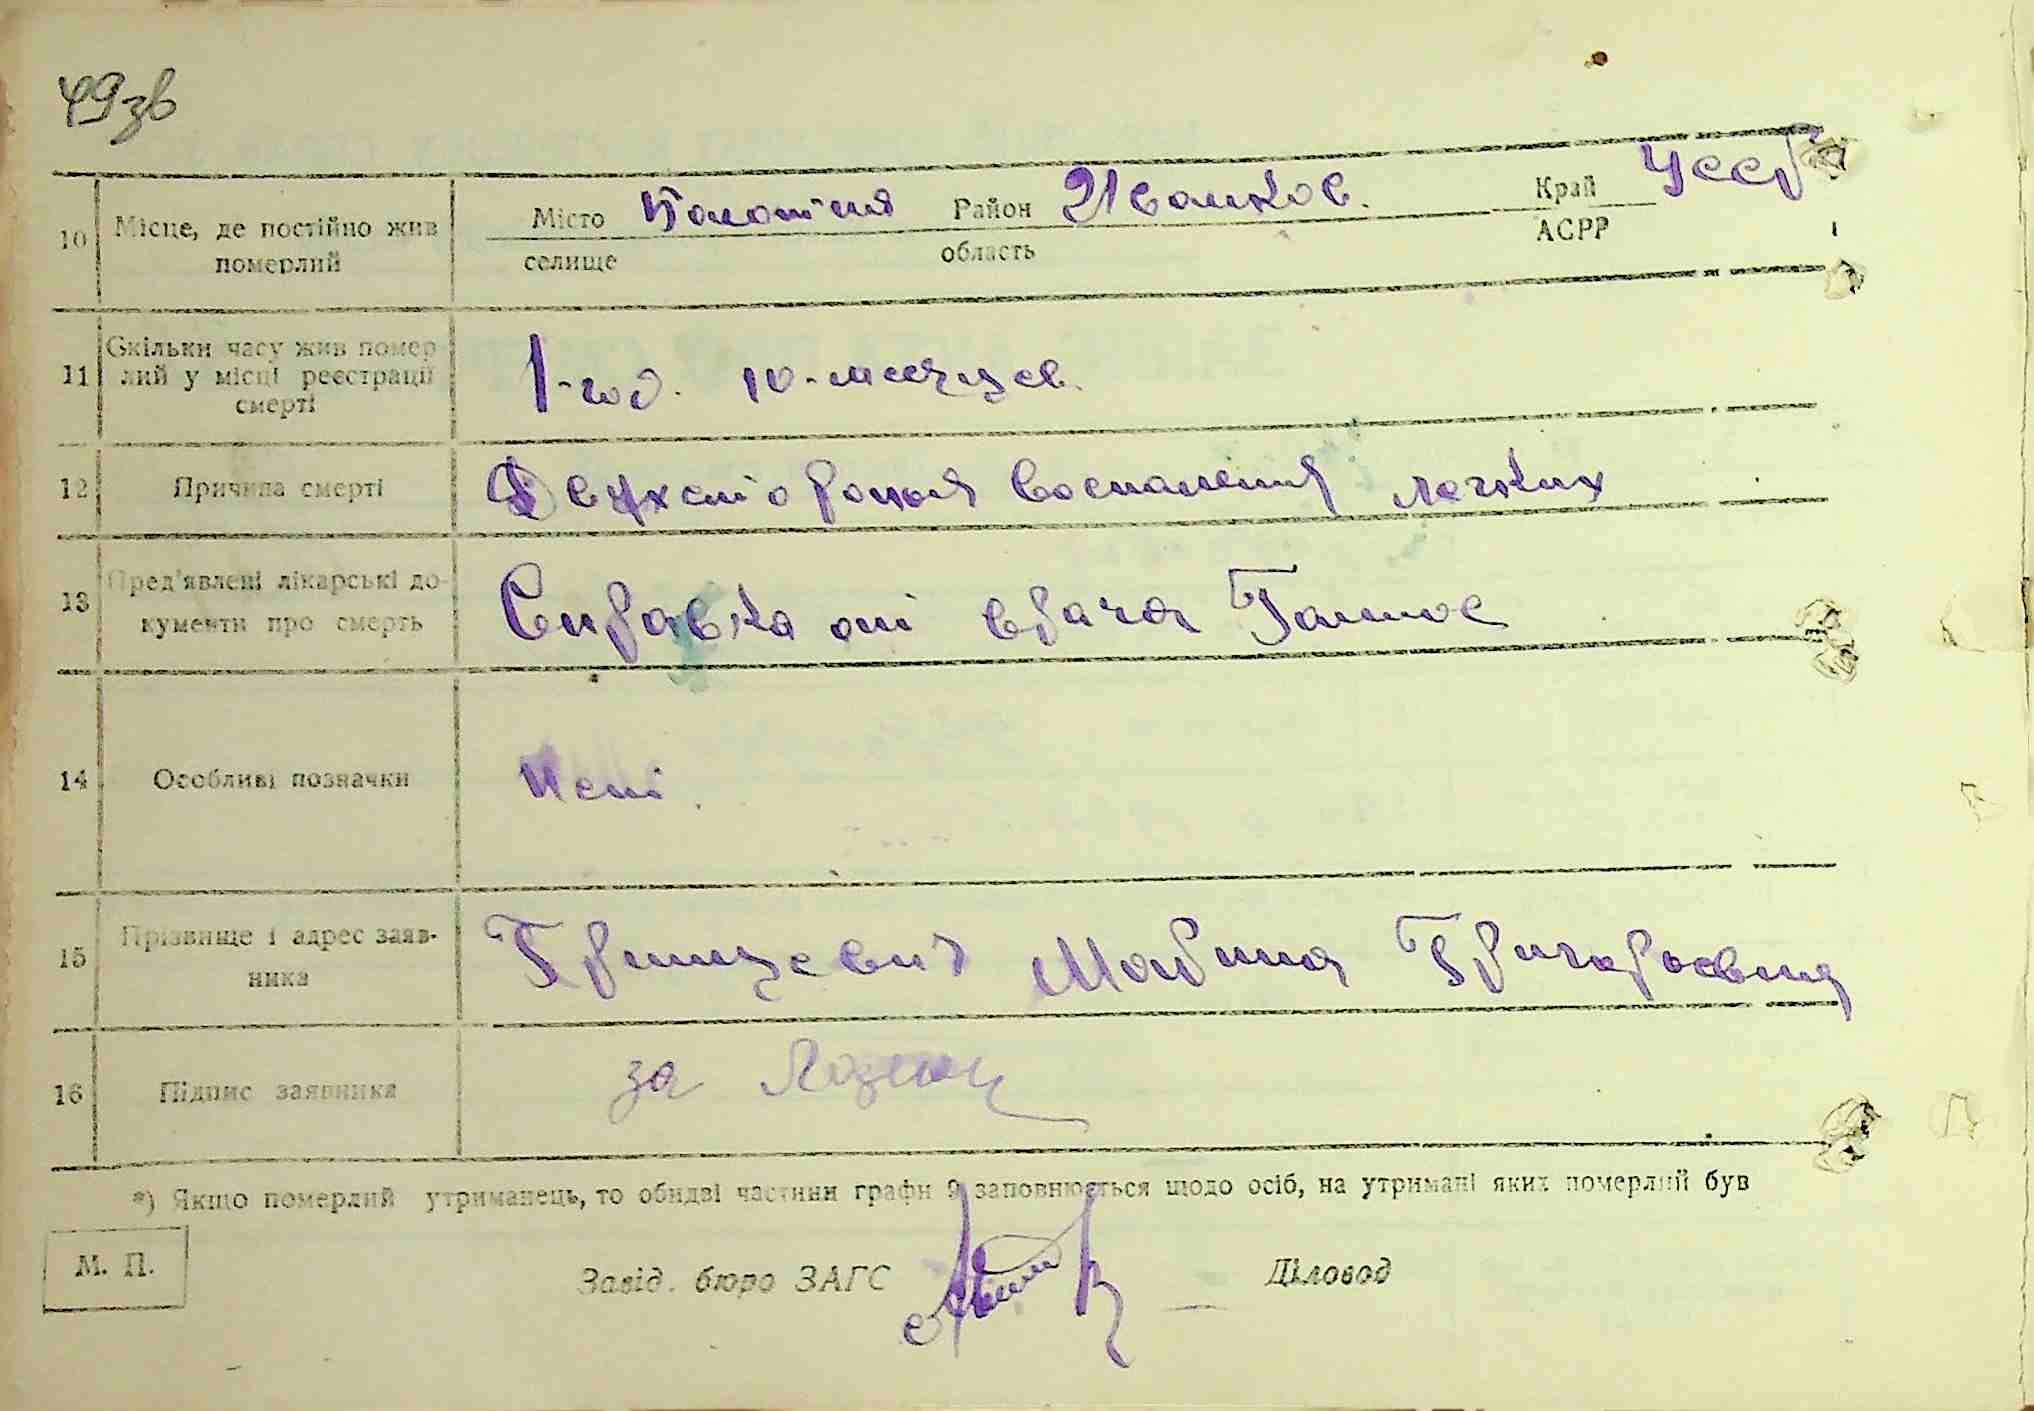 49зв
10 Місце, де постійно жив померлий Місто селище Район Иванков. область Край АСРР УССР
11 Скільки часу жив померлий у місці реєстрації смерті 1-год. 10-месяцев.
12 Причина смерті Двухсторонняя воспаления легких
13 Пред'явлені лікарські документи про смерть Справка от врача
14 Особливі позначки Нет.
15 Прізвище і адрес заявника Марина Григорьевна
16 Підпис заявника за
*) Якщо померлий утриманець, то обидві частини графи 9 заповнюється щодо осіб, на утримані яких померлий був
М. П. Завід. бюро ЗАГС Діловод